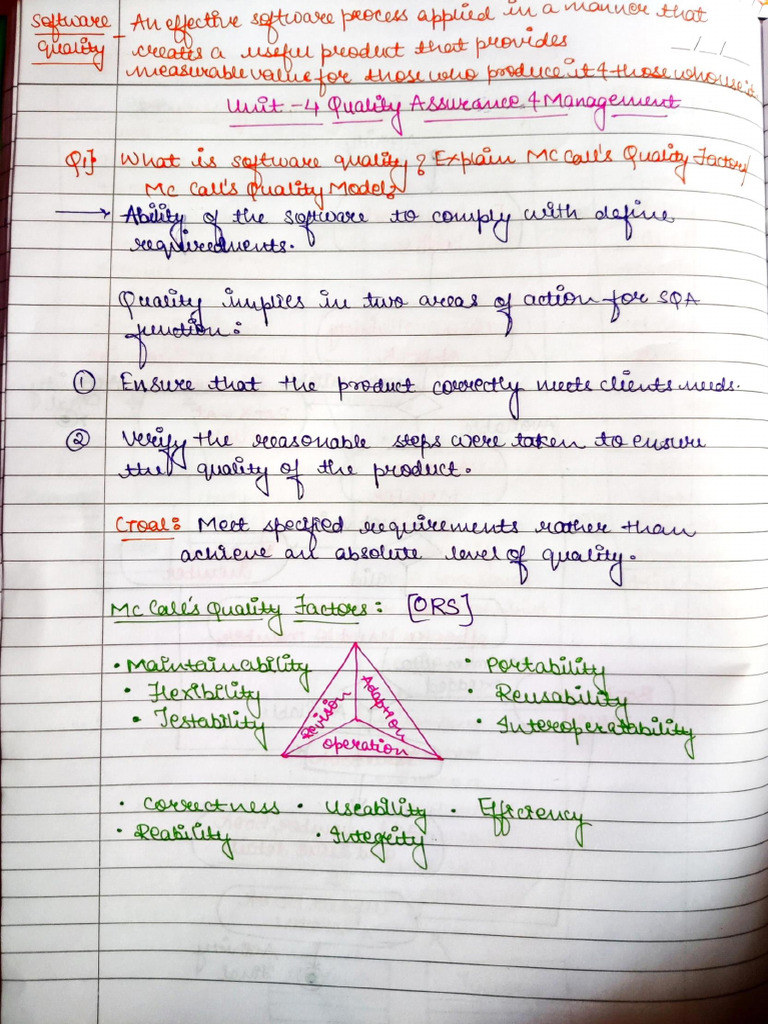 Software quality - An effective software process applied in a manner that
creates a useful product that provides
measurable value for those who produce it & those who use it
Unit -4 Quality Assurance & Management
Q1} What is software quality? Explain Mc Call's Quality Factor/
Mc Call's Quality Model?
→ Ability of the software to comply with define
requirements.
Quality implies in two areas of action for SQA
function:
① Ensure that the product correctly meets clients needs.
② Verify the reasonable steps were taken to ensure
the quality of the product.
Goal: Meet specified requirements rather than
achieve an absolute level of quality.
Mc Call's Quality Factors: [ORS]
• Maintainability
• Flexibility
• Testability
Revison
Adaption
operation
• Portability
• Reusability
• Interoperatability
• Correctness • Useability • Efficiency
• Reability • Integrity